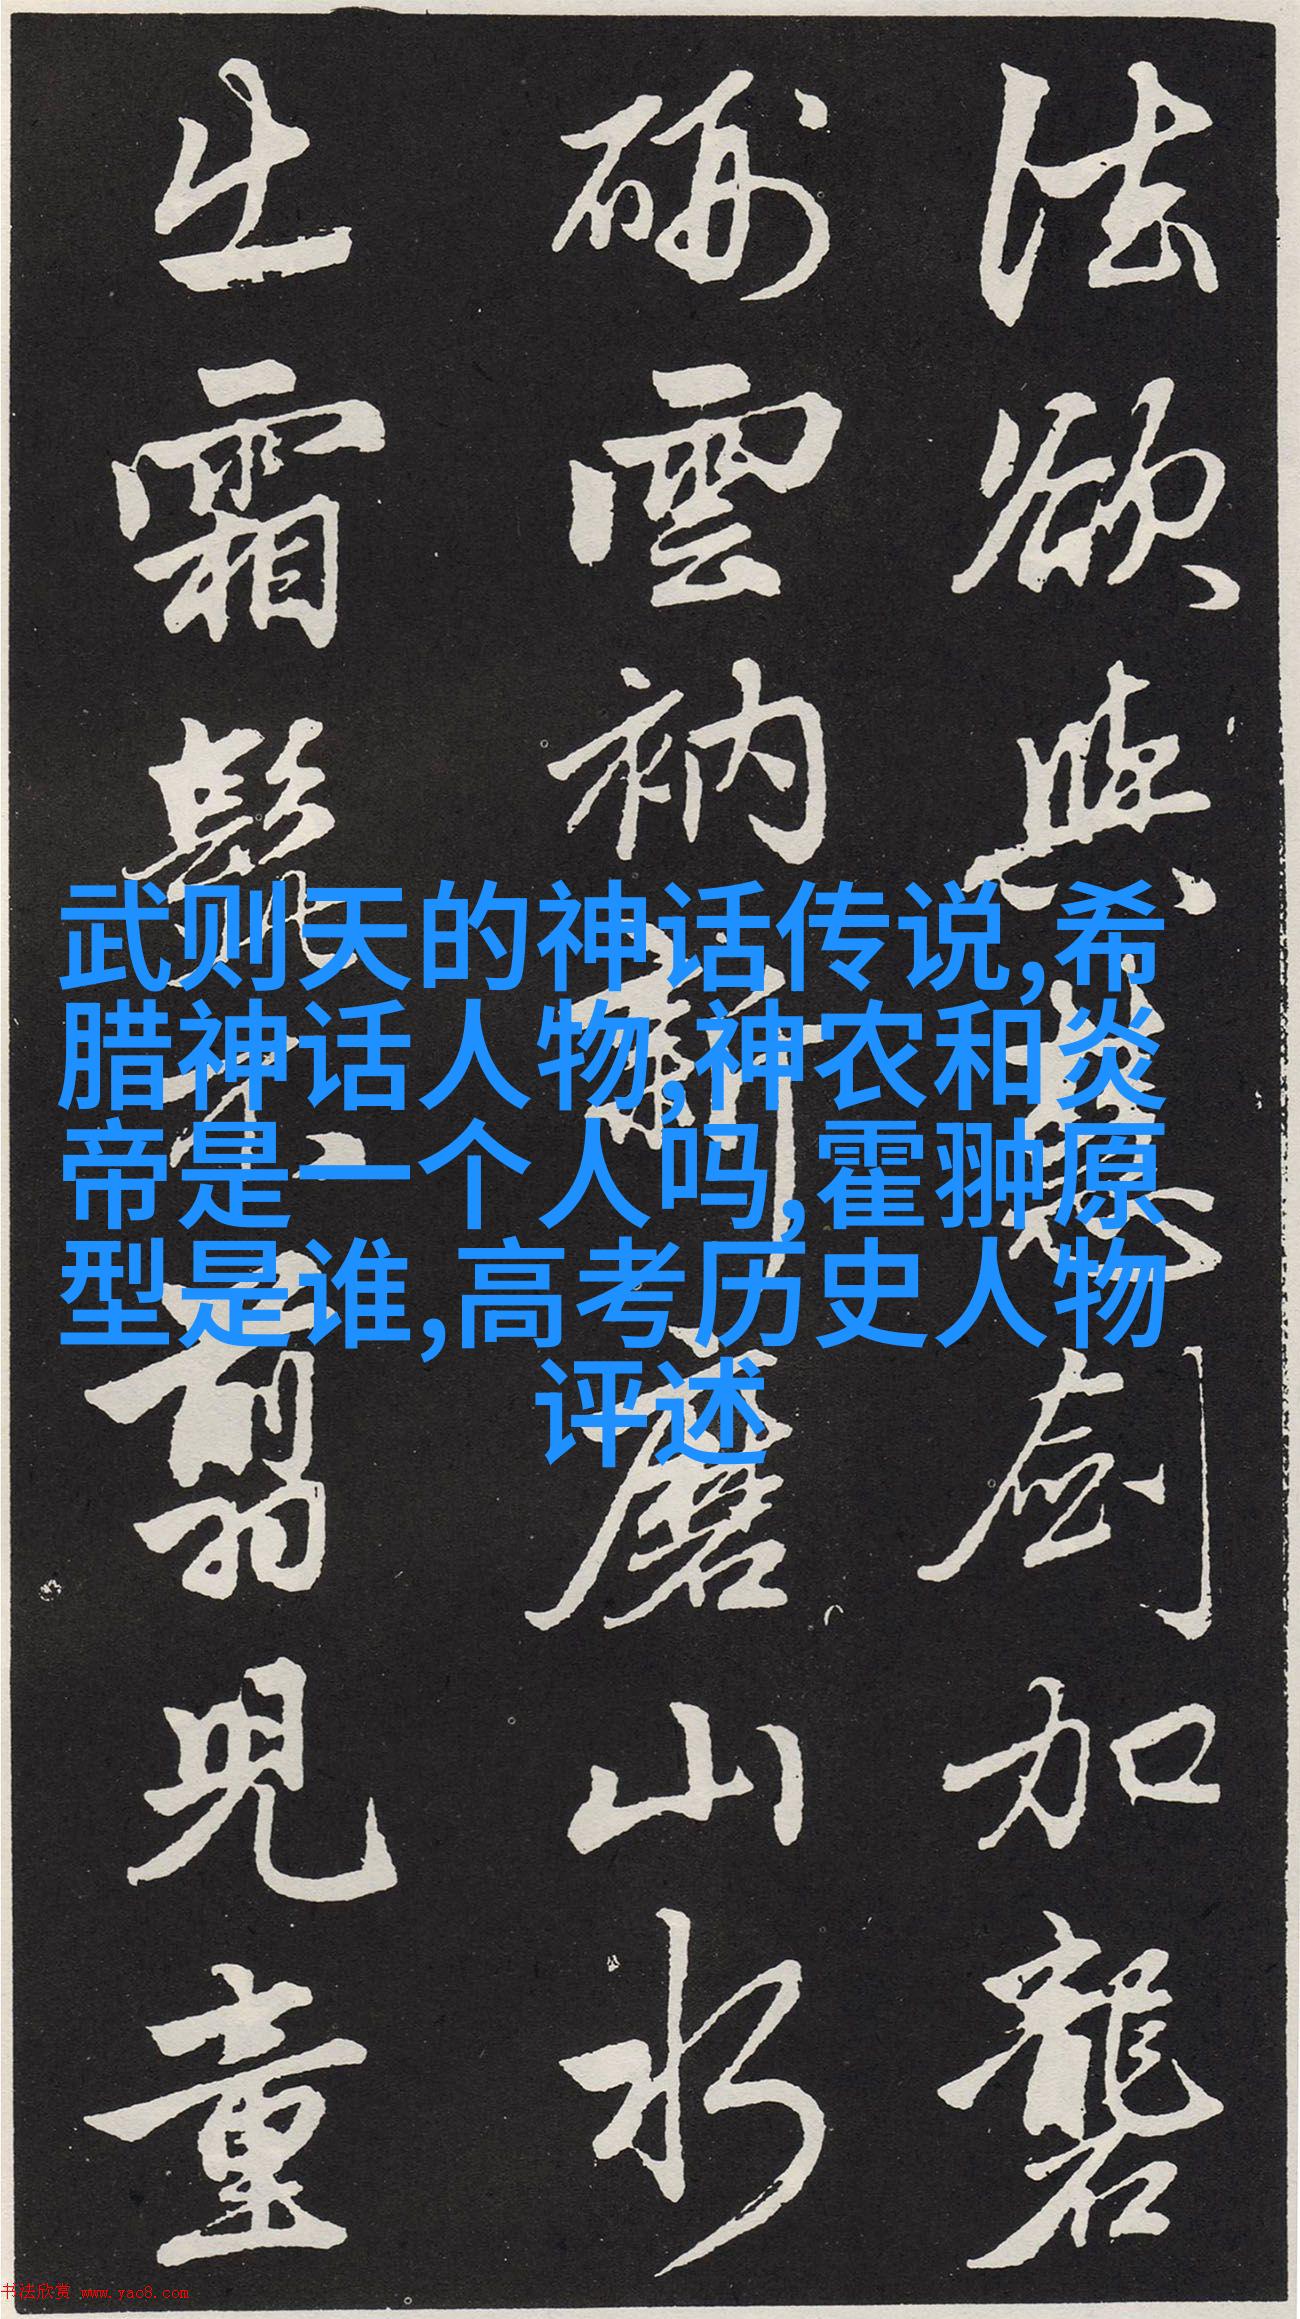 法欲與慧劍加礱
硎雲衲新磨山水
出霜髭不翦兒童
武则天的神话传说,希
腊神话人物,神农和炎
帝是一个人吗,霍翀原
型是谁,高考历史人物
评述
书法欣赏 www.yac8.com